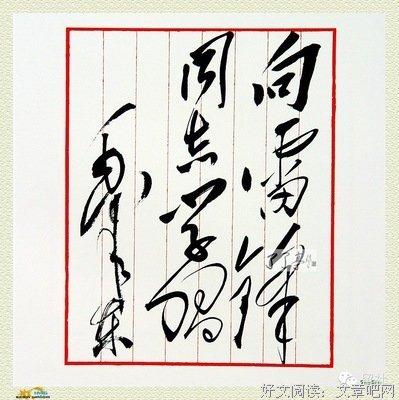 向雷锋
同志学习
毛泽东
好文阅读：文章吧网